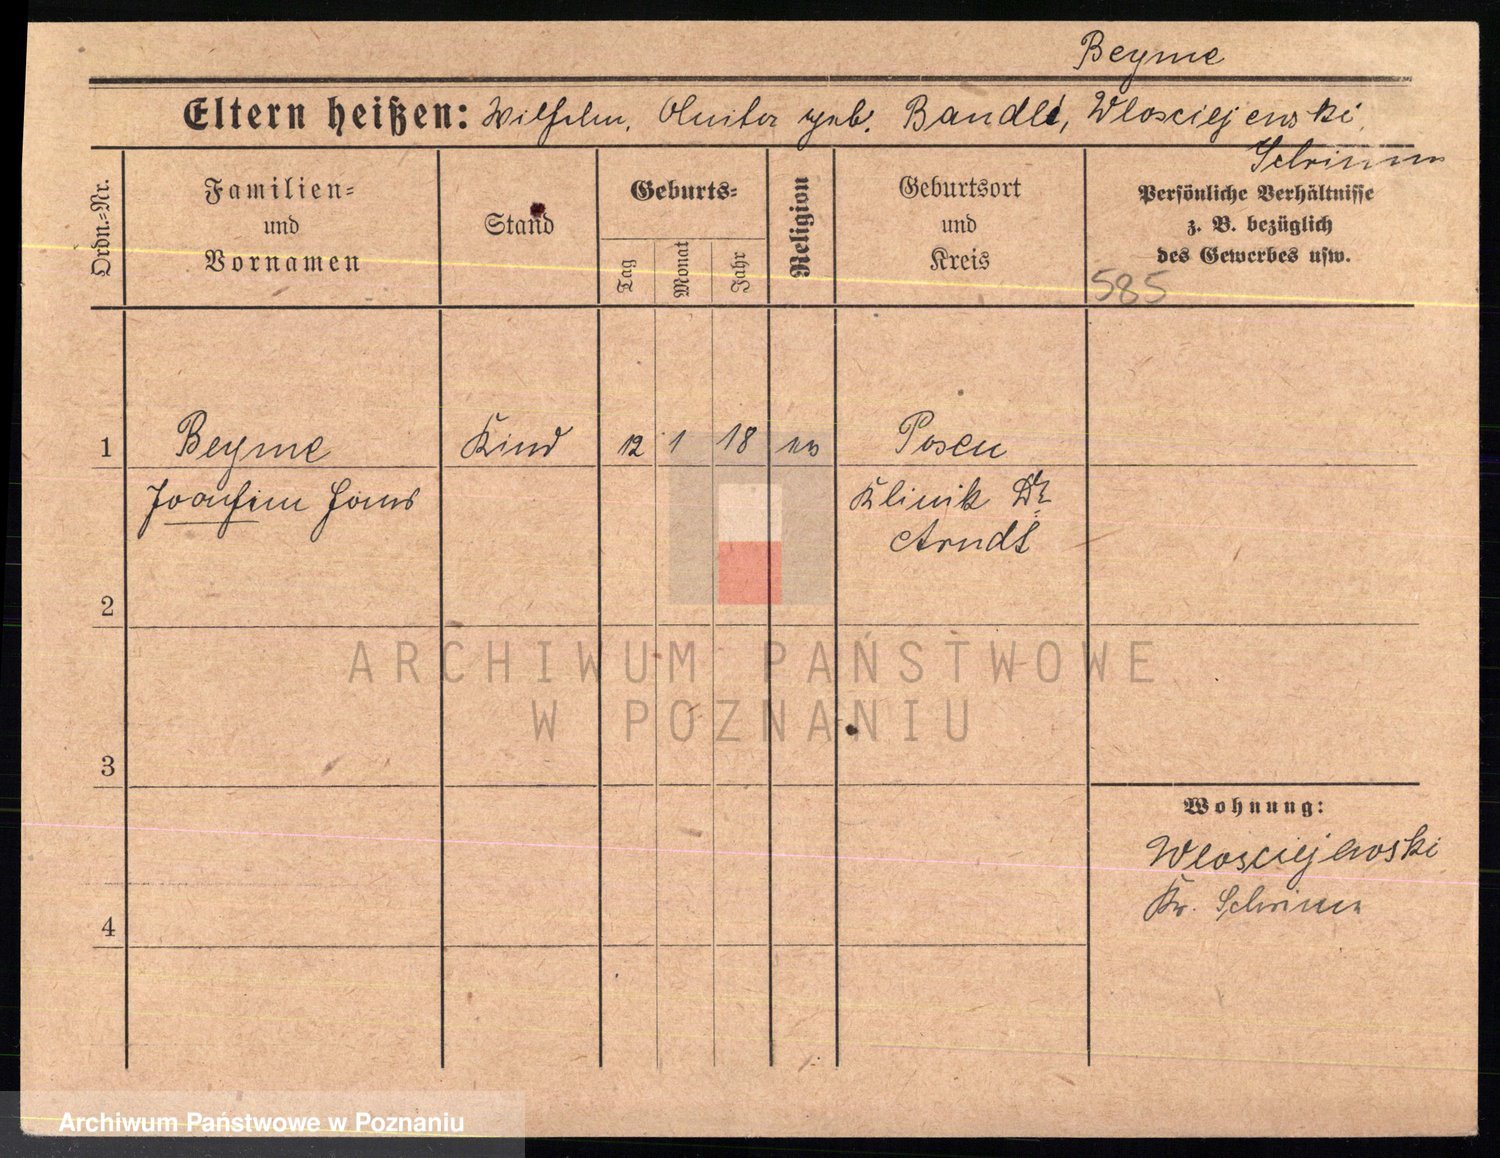 Beyme
Eltern heißen: Wilhelm, geb. Bandle, Wlosciejewski,
Schrimm
Ordn.-Nr.
Familien-
und
Vornamen
Stand
Geburts-
Tag
Monat
Jahr
Religion
Geburtsort
und
Kreis
Persönliche Verhältnisse
z. B. bezüglich
des Gewerbes usw.
585
1 Beyme Kind 12 1 18 ev Posen
Joachim Hans Klinik Dr.
Arndt
2
ARCHIWUM PAŃSTWOWE
W POZNANIU
3
Wohnung:
Wlosciejewski
Kr. Schrimm
4
Archiwum Państwowe w Poznaniu